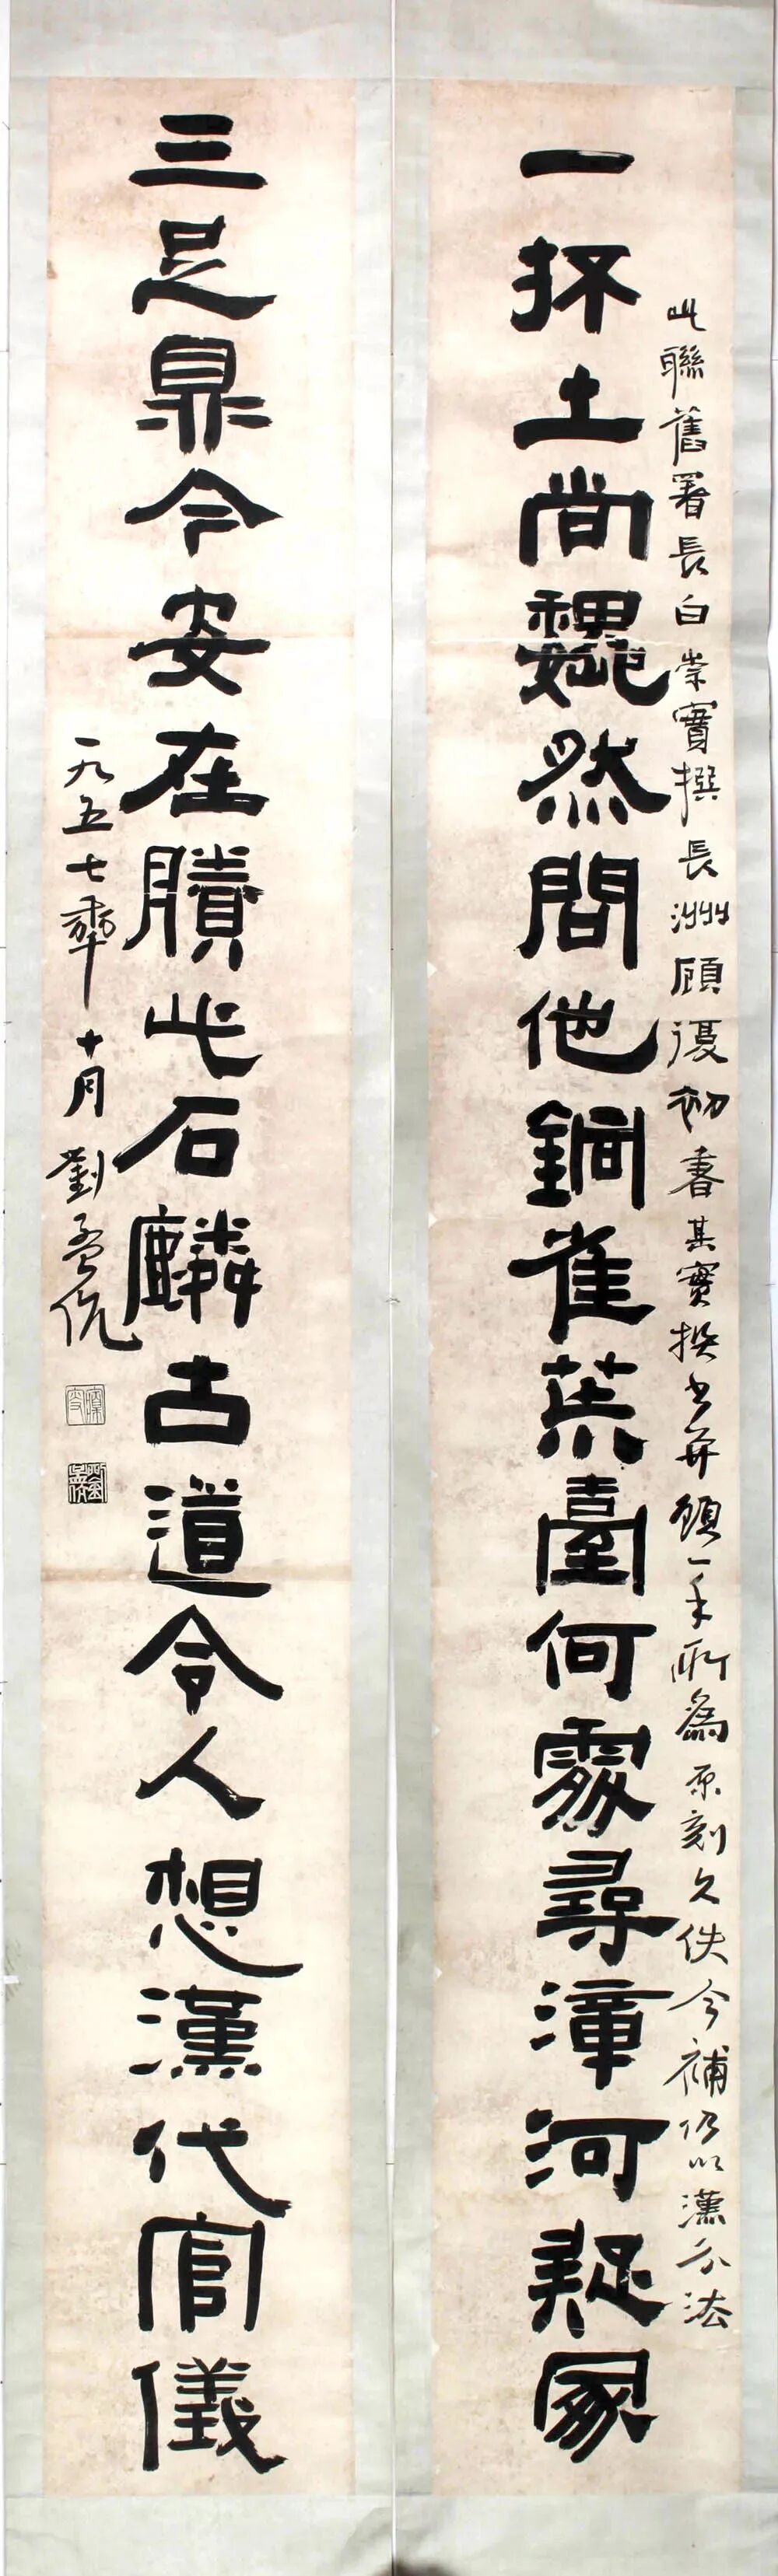 此聯舊署長白崇實撰長洲顧復初書其實撰書并顧一手所為原刻久佚今補仍以漢分法
一抔土尚巍然問他銅雀荒臺何處尋漳河疑冢
三足鼎今安在賸此石麟古道令人想漢代官儀
一九五七年十月劉孟伉